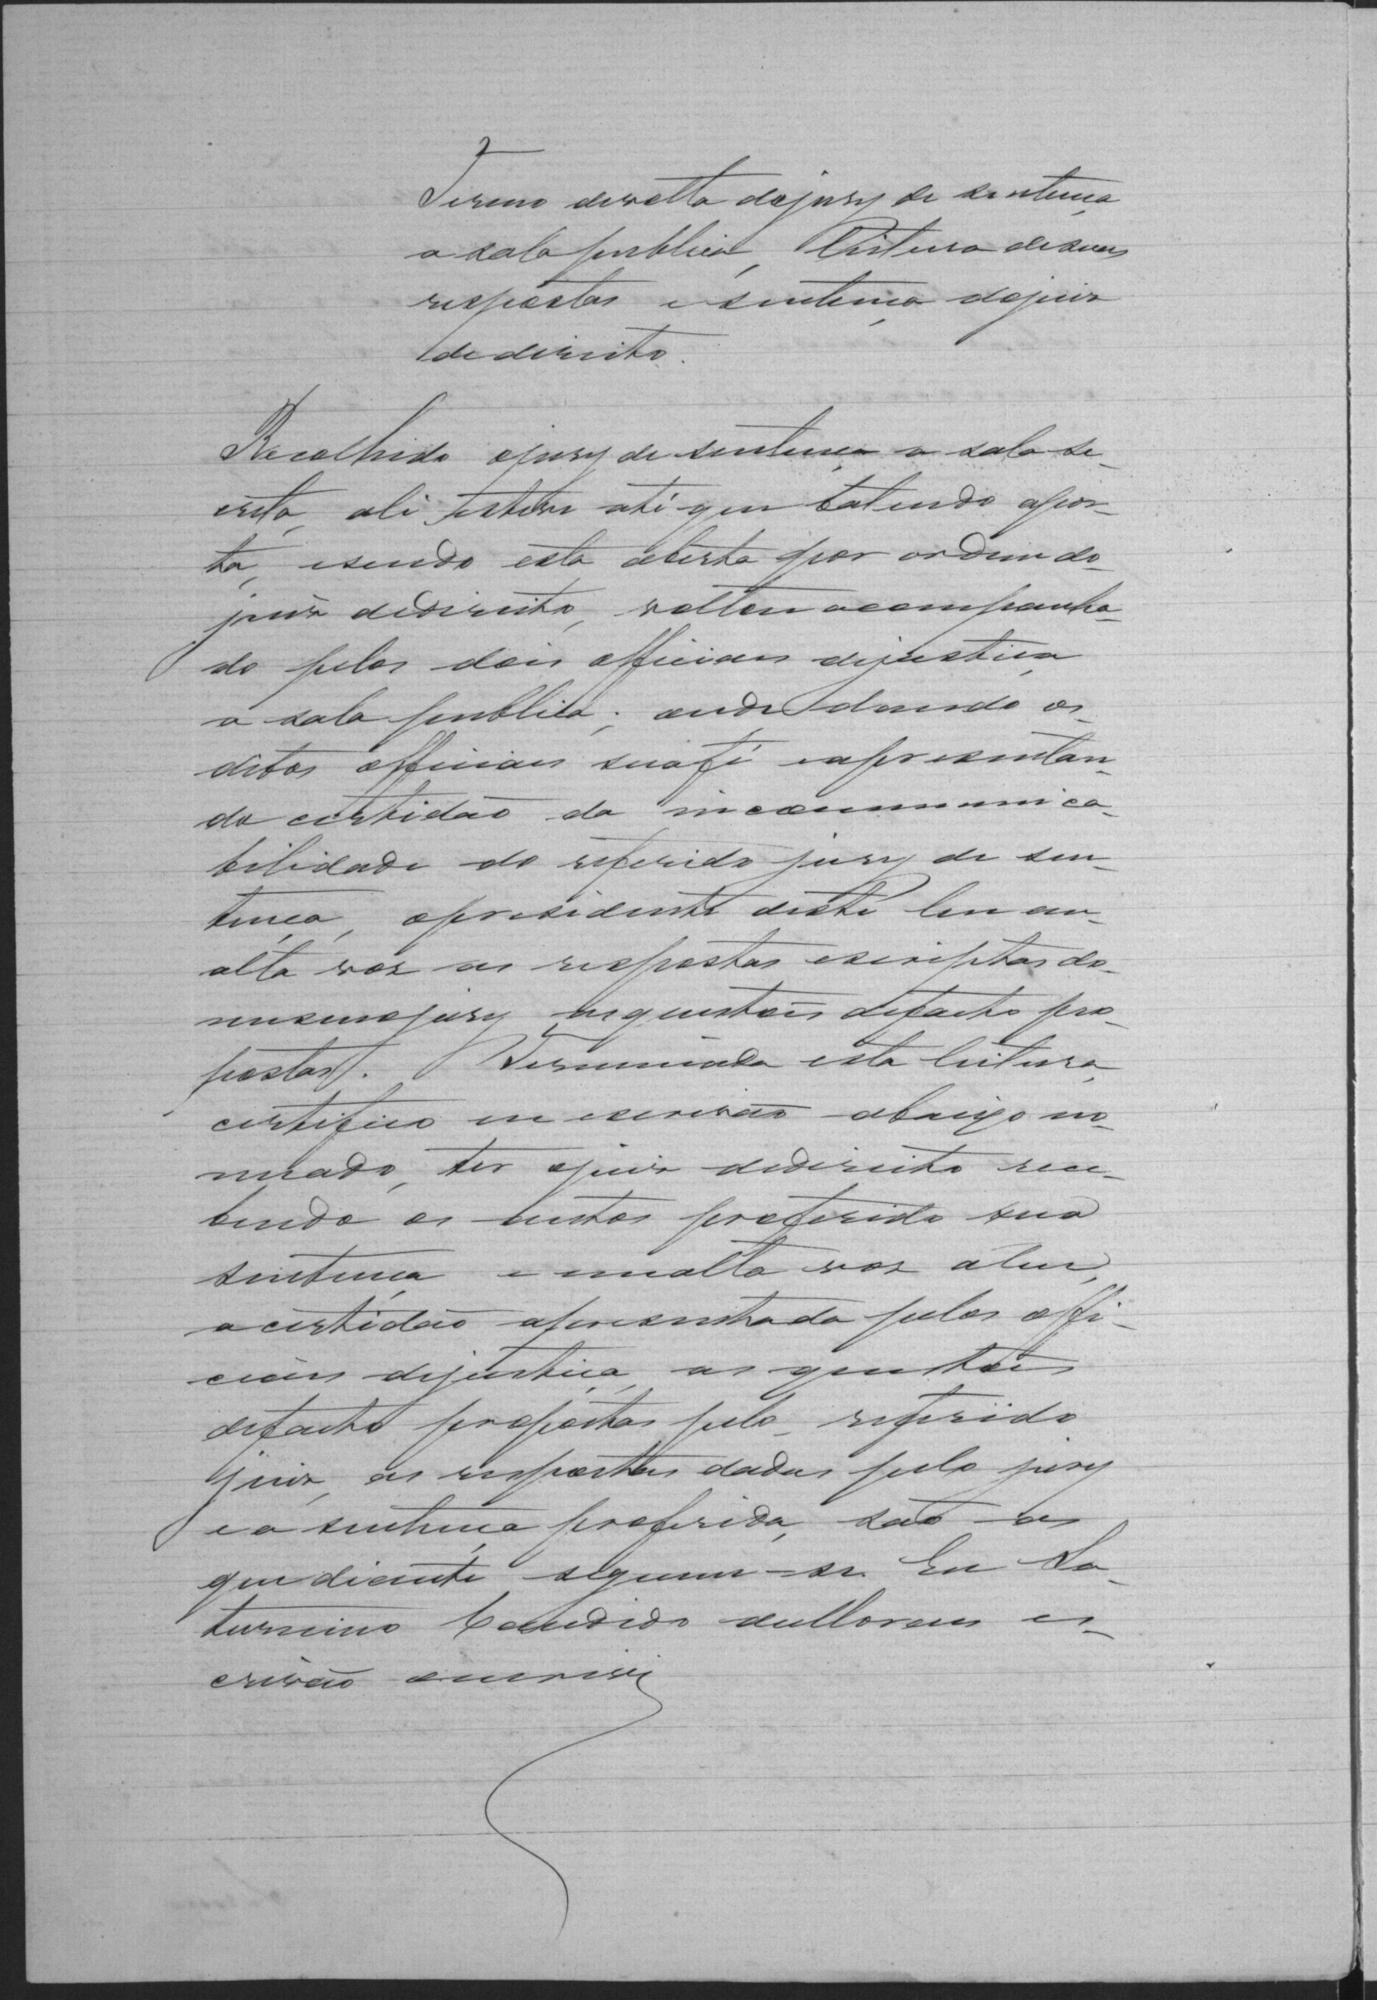 Termo de volta do jury de sentença
a sala publica, leitura de suas
respostas e sentença do juiz
de direito.
Recolhido o jury de sentença a sala se-
creta, ali esteve até que batendo a por-
ta, e sendo esta aberta por ordem do
juiz de direito, voltou acompanha-
do pelos dois officiaes de justiça
a sala publica; onde dando os
ditos officiaes sua fé e apresentan-
do certidão da incommunica-
bilidade do referido jury de sen-
tença, o presidente deste leu em
alta voz as respostas escriptas do
mesmo jury as questões de facto pro-
postas. Terminada esta leitura,
certifico eu escrivão abaixo no-
meado, ter o juiz de direito rece-
bendo os autos proferido sua
sentença e em alta voz a leu,
a certidão apresentada pelos offi-
ciaes de justiça, as questões
de facto propostas pelo referido
juiz, as respostas dadas pelo jury
e a sentença proferida, são as
que diante seguem-se. Eu Sa-
turnino Candido de Moraes es-
crivão o escrevi